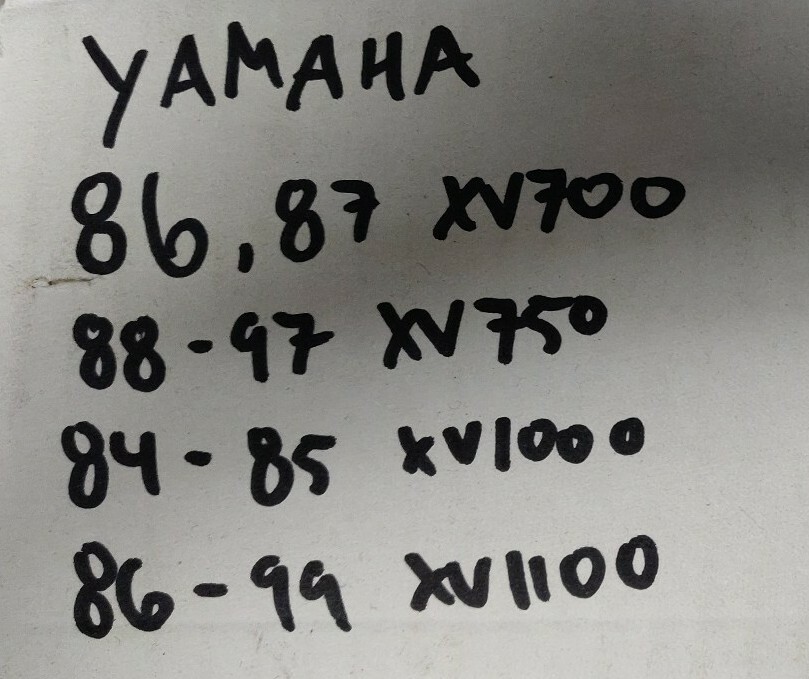 YAMAHA
86,87 XV700
88-97 XV750
84-85 XV1000
86-99 XV1100